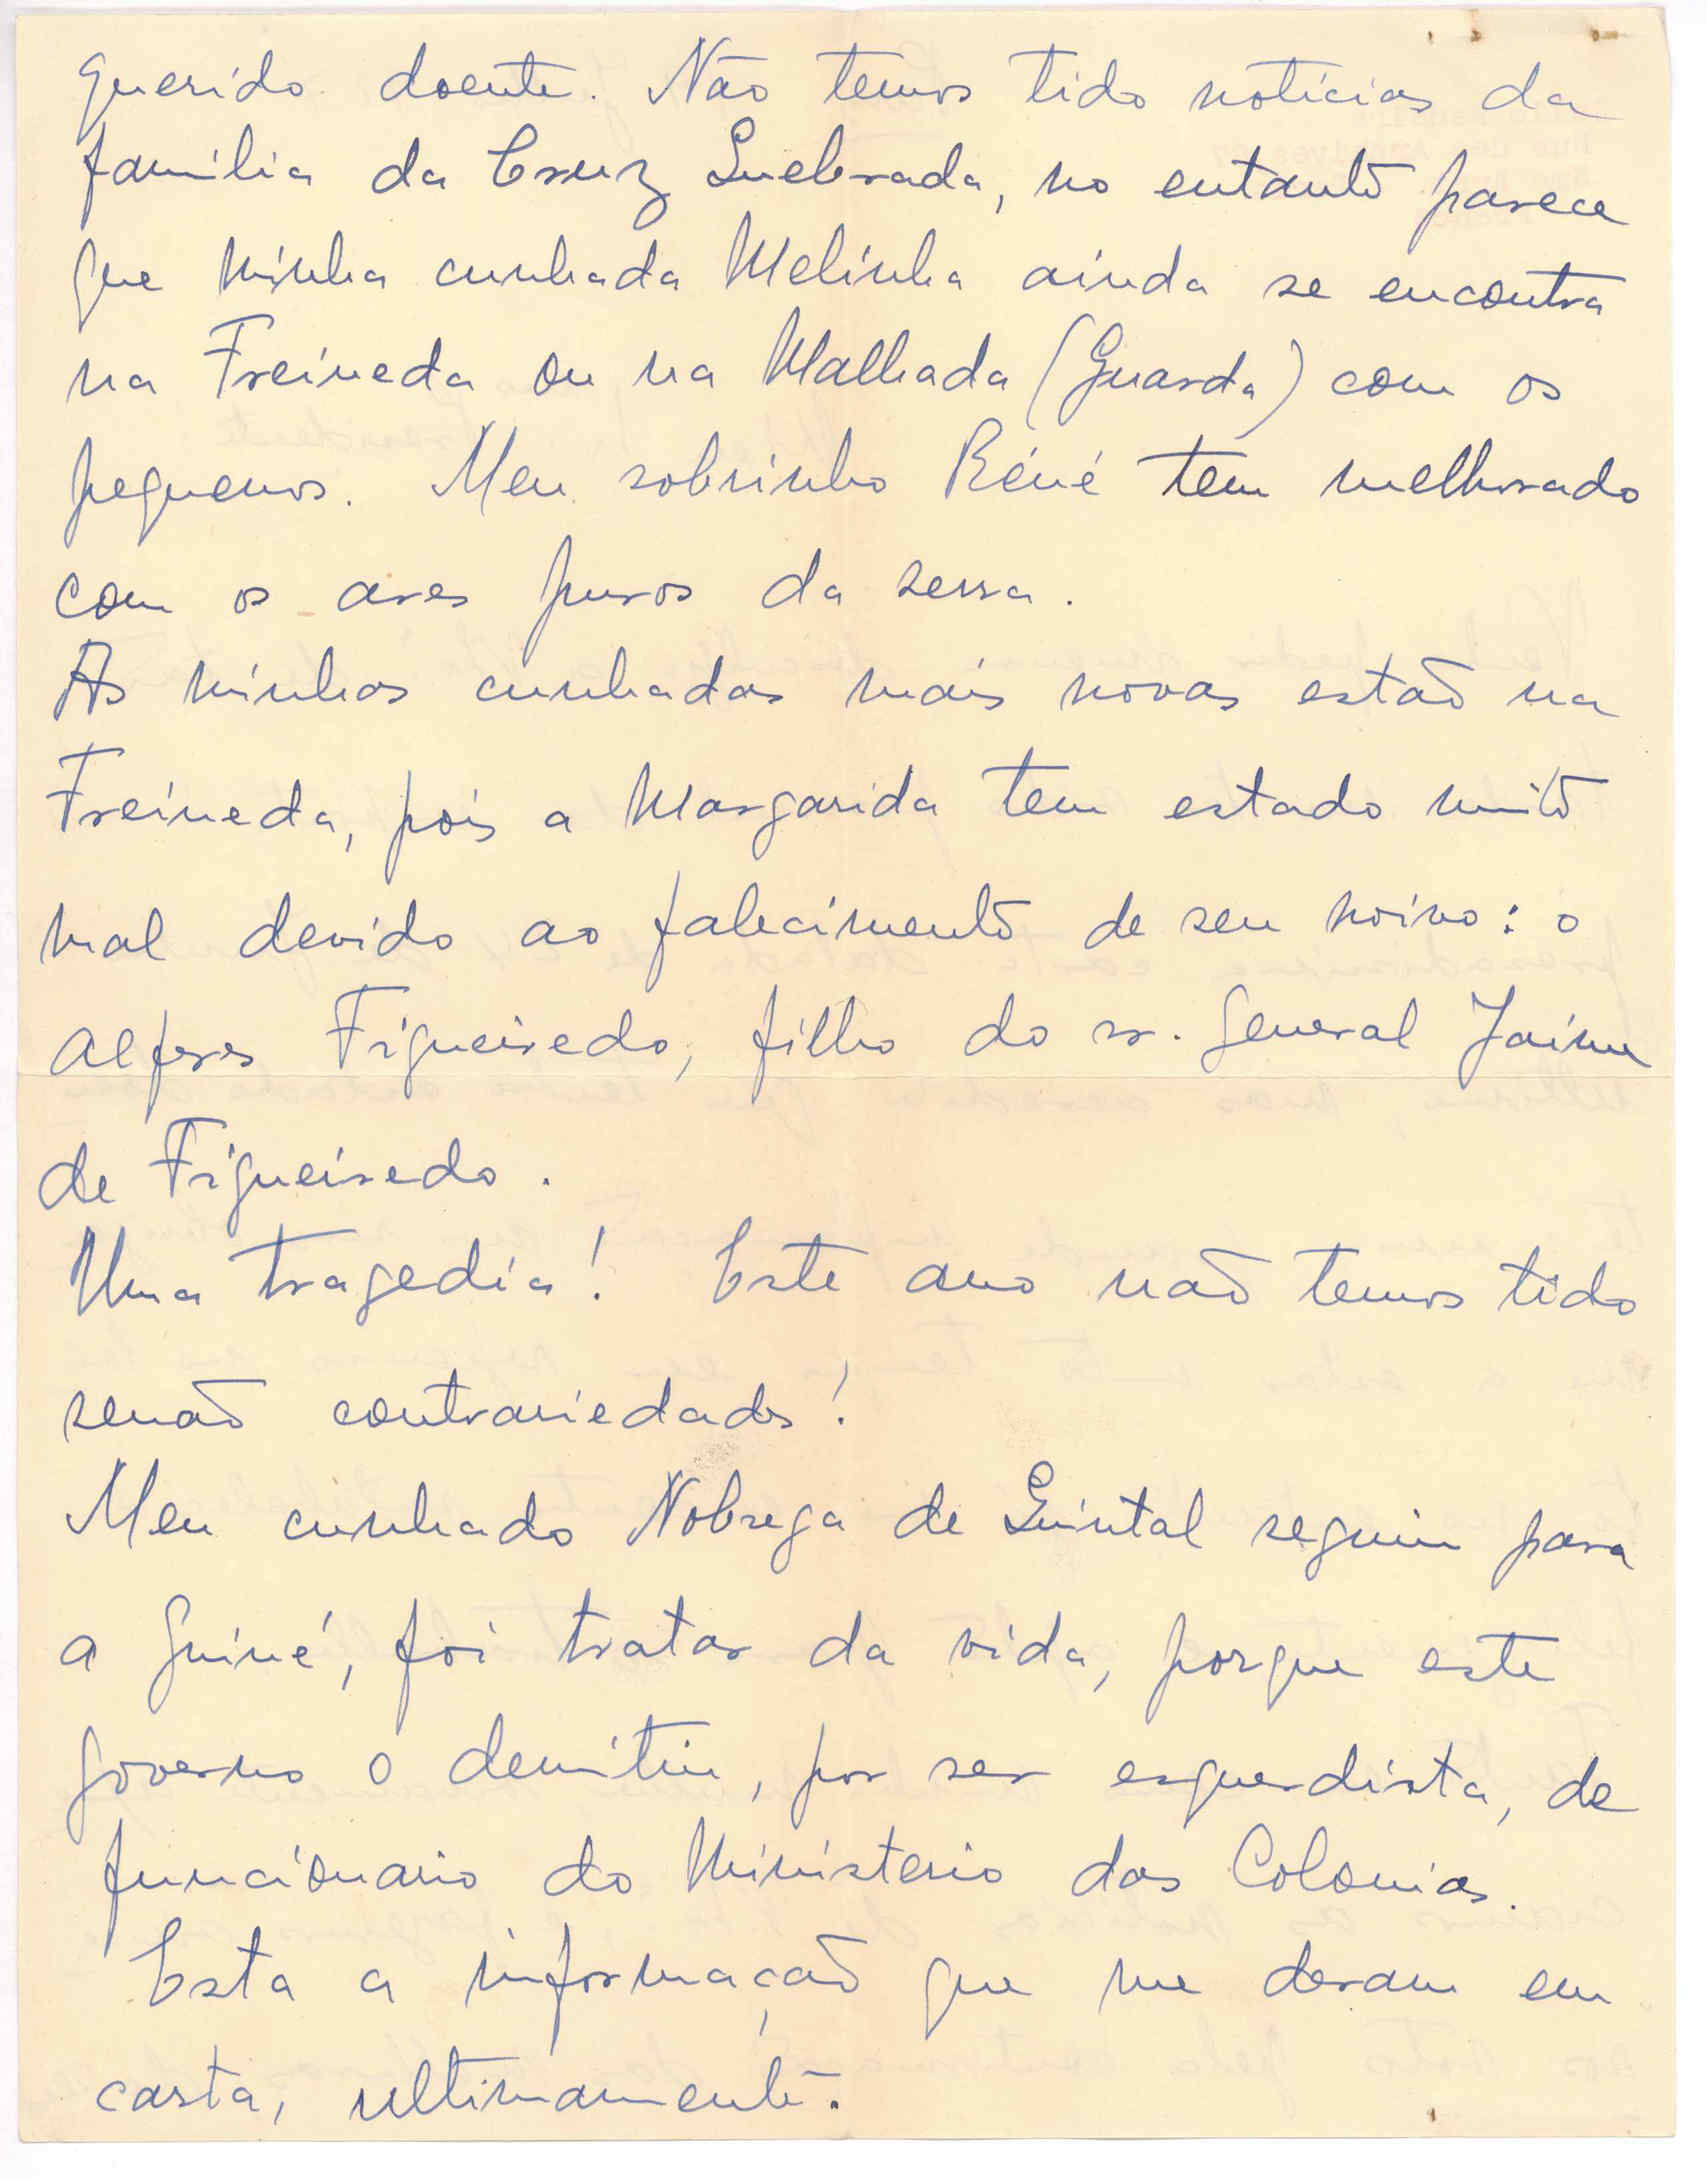 querido doente. Não temos tido notícias da
família da Cruz Quebrada, no entanto parece
que minha cunhada Melinha ainda se encontra
na Freineda ou na Malhada (Guarda) com os
pequenos. Meu sobrinho Réné tem melhorado
com os ares puros da serra.
As minhas cunhadas mais novas estão na
Freineda, pois a Margarida tem estado muito
mal devido ao falecimento de seu noivo: o
alferes Figueiredo, filho do sr. General Jaime
de Figueiredo.
Uma tragedia! Este ano não temos tido
senão contrariedades!
Meu cunhado Nobrega de Quintal seguiu para
a Guiné, foi tratar da vida, porque este
governo o demitiu, por ser esquerdista, de
funcionario do Ministerio das Colonias.
Esta a informação que me deram em
carta, ultimamente.